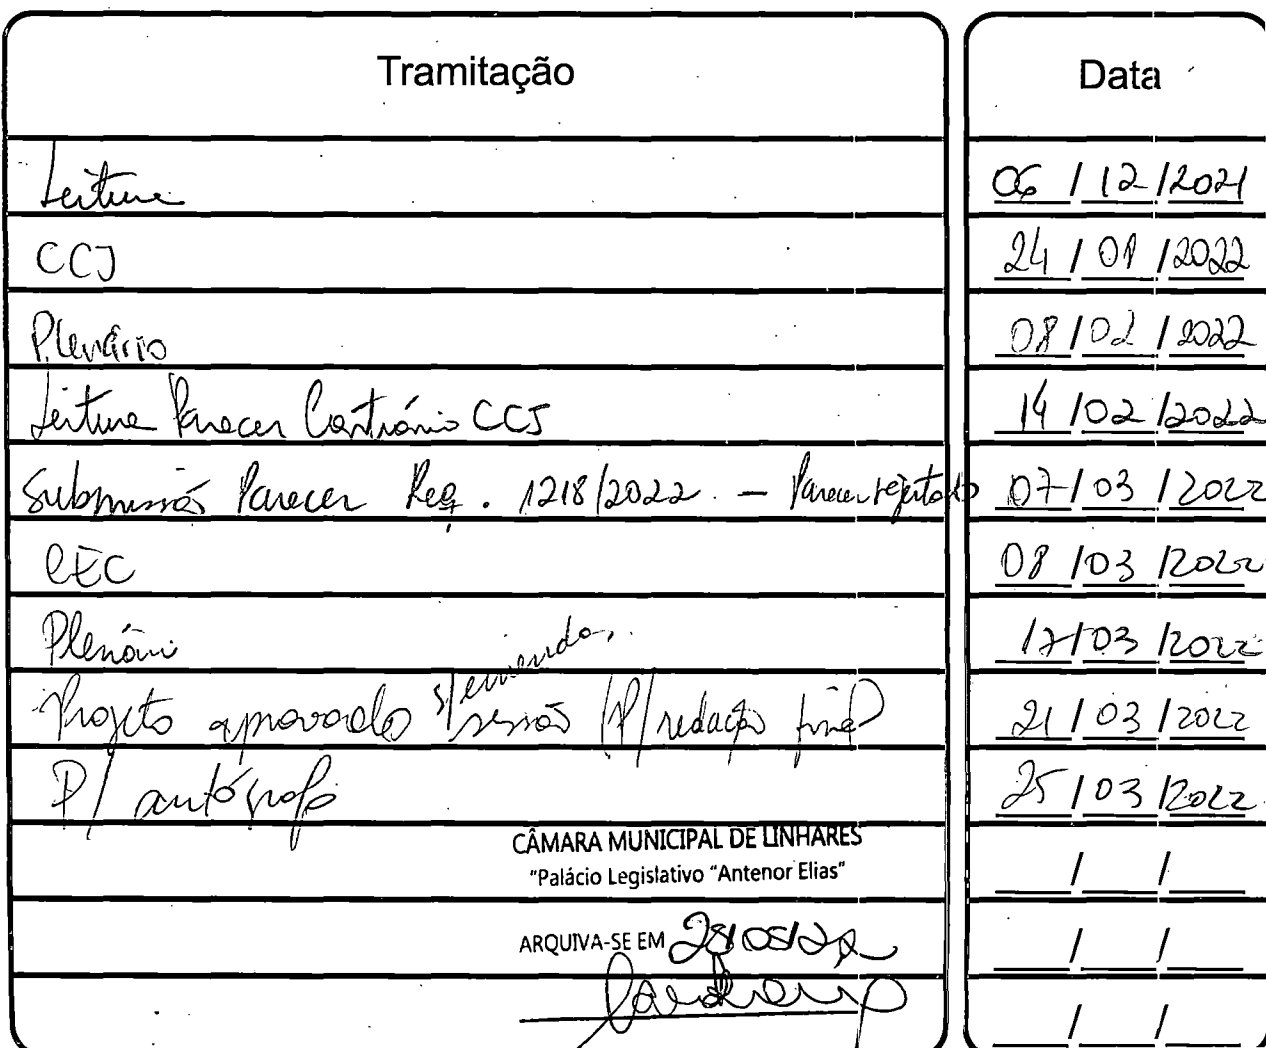 Tramitação Data
Leitura 06/12/2021
CCJ 24/01/2022
Plenário 08/02/2022
Leitura Parecer Contrário CCJ 14/02/2022
Submissão Parecer Req. 1218/2022 - Parecer rejeitado 07/03/2022
CEC 08/03/2022
Plenário 17/03/2022
s/ emenda,
Projeto aprovado sessão (P/ redação final 21/03/2022
P/ autógrafo 25/03/2022
CÂMARA MUNICIPAL DE LINHARES
"Palácio Legislativo "Antenor Elias"
ARQUIVA-SE EM